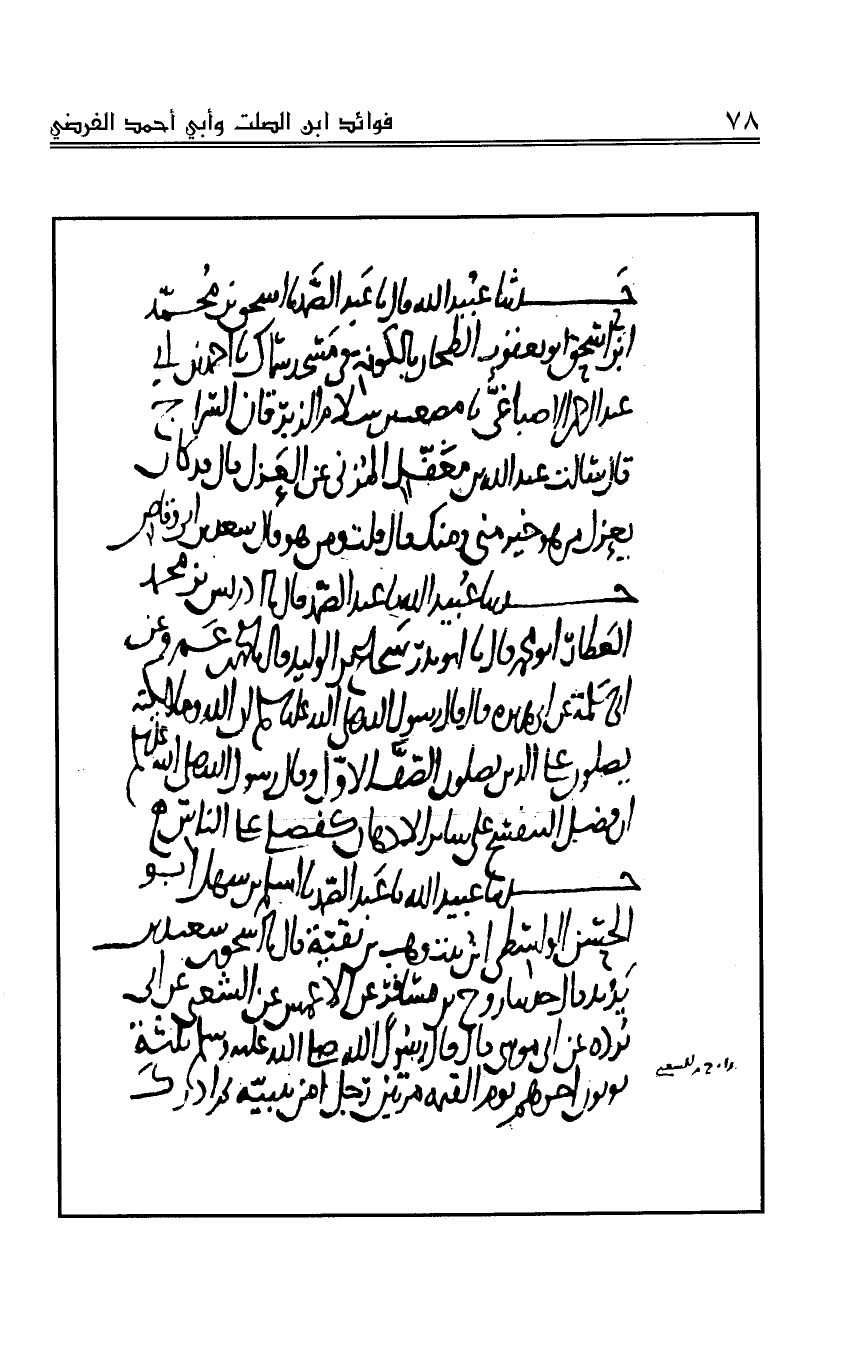 ٧٨ فوائد ابن الصلت وأبي أحمد الفرضي
حدثنا عبيد الله قال نا عبد الصمد نا اسحق بن محمد
ابن اسحق ابو يعقوب الطحان بالكوفة نا احمد بن ابي
عبد الرحمن نا مصعب بن سلام الزبرقان السراج
قال سالت عبد الله بن مغفل المزني عن العزل قال قد كان
يعزل من هو خير مني ومنك قال قلت ومن هو قال سعد بن ابي وقاص
حدثنا عبيد الله نا عبد الصمد قال نا ادريس بن محمد
العطار ابو محمد قال نا ابو بدر شجاع بن الوليد قال نا محمد بن عمرو عن
ابي سلمة عن ابي هريرة قال قال رسول الله صلى الله عليه وسلم ان الله وملائكته
يصلون على الذين يصلون الصف الاول وقال رسول الله صلى الله عليه وسلم
ان فضل البنفسج على سائر الادهان كفضلي على الناس
حدثنا عبيد الله نا عبد الصمد نا اسلم بن سهل ابو
الحسن الواسطي ابن بنت وهب بن بقية قال نا اسحق سعيد بن
يزيد قال حدثنا روح بن مسافر عن الاعمش عن الشعبي عن ابي
بردة عن ابي موسى قال قال رسول الله صلى الله عليه وسلم ثلثة
يوتون اجرهم يوم القيمة مرتين رجل امن بنبيه ثم ادرك